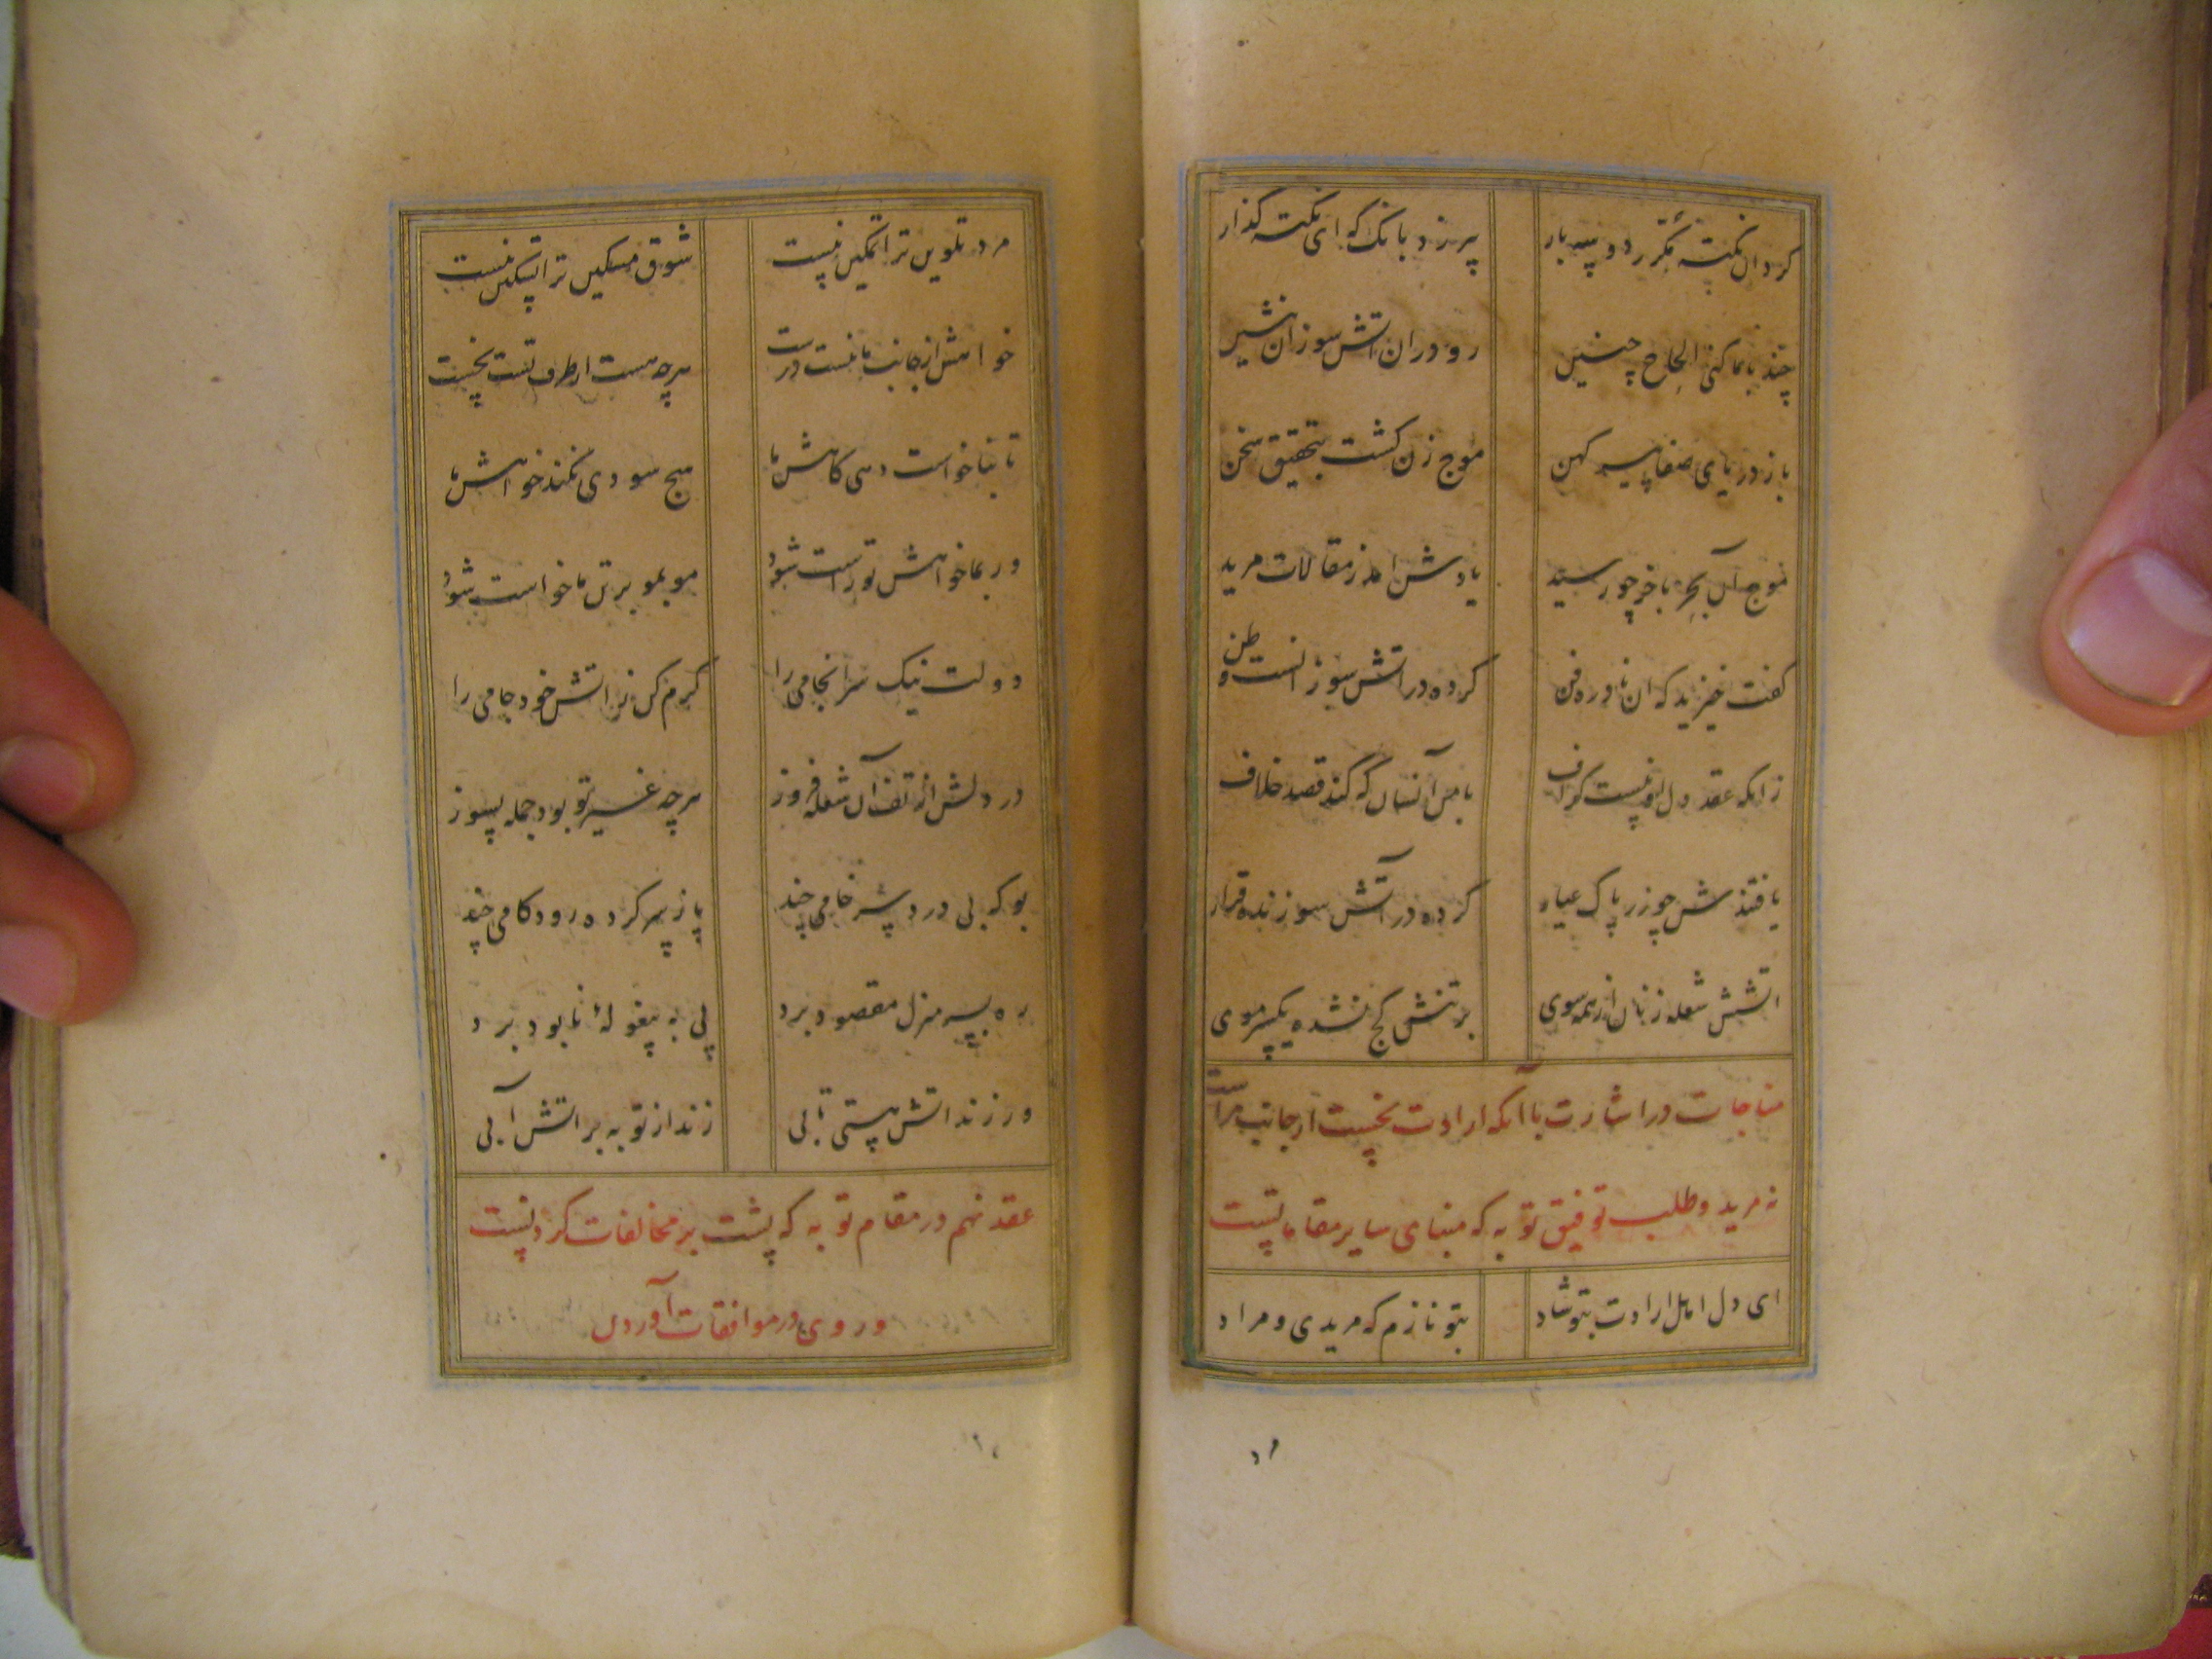 کرد ان نکته مکرر دو سه بار پیر زد بانک که ای نکته گذار
چند با ما کنی الحاح چنین رو دران اتش سوزان بنشین
باز دریای صفا پیر کهن موج زن کشت بتحقیق سخن
موج آن بحر باخر چو رسید یادش امد ز مقالات مرید
کفت خیزید که ان نادره فن کرده در اتش سوزانست وطن
زانکه عقد دل او نیست کزاف با من آنسان که کند قصد خلاف
یافتندش چو زر پاک عیار کرده در آتش سوزنده قرار
اتشش شعله زنان از همه سوی بر تنش کج نشده یکسر موی
مناجات در اشارت با آنکه ارادت نخست از جانب مراست
نه مرید و طلب توفیق توبه که مبنای سایر مقاماتست
ای دل اهل ارادت بتو شاد بتو نازم که مریدی و مراد
مرد تلوین ترا تمکین نیست شوق مسکین ترا تسکین نیست
خواهش از جانب ما نیست درست هرچه هست از طرف تست نخست
تا نباخواست دهی کاهش ما هیچ سودی نکند خواهش ما
ور بما خواهش تو راست شود مو بمو بر تن ما خواست شود
دولت نیک سرانجامی را کرم کن زاتش خود جامی را
در دلش از تف آن شعله فروز هرچه غیر تو بود جمله بسوز
بو که بی درد سر خامی چند پا ز سر کرده رود کامی چند
ره بسر منزل مقصود برد پی به پیغولهٔ نابود برد
ور زند اتش هستی تابی زند از توبه بر اتش آبی
عقد نهم در مقام توبه که پشت بر مخالفات کردنست
و روی در موافقات آوردن